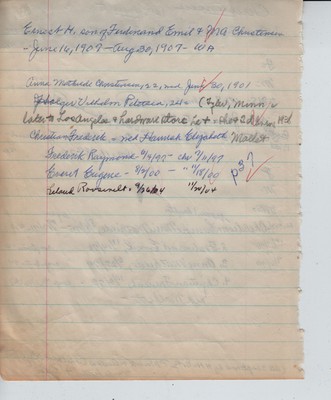 Ernest H. son of Ferdinand Emil & Christensen
- June 16, 1907 - Aug 30, 1907 - WA
Anna Mathilde Christensen, 22, md June 30, 1901
Holger Vilhelm Petersen, 24 - (Tyler, Minn,
Later to Los Angeles & hardware store
Christian Frederik - md Hannah Elizabeth Mallet
Frederik Raymond 2/9/97 - chr
Evert Eugene - 2/2/00 -
Leland Roosevelt - 9/26/04 11/20/04
p 37